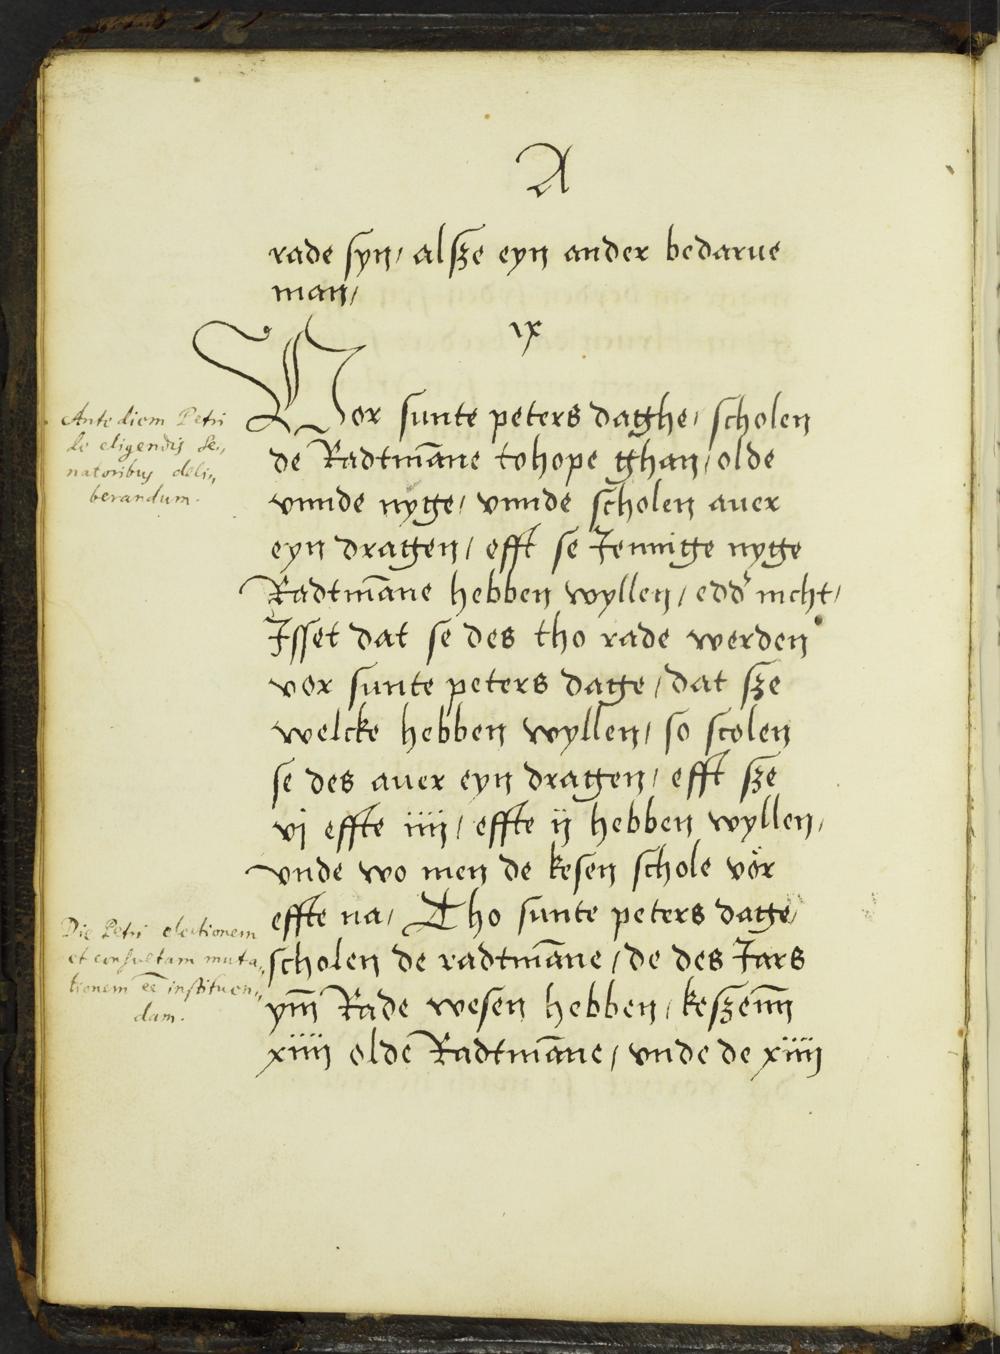 A
rade syn/ alsze eyn ander bedarue
man/
ix
Vor sunte peters daghe/ scholen
de Radtmāne tohope ghan/ olde
vnnde nyge/ vnnde scholen auer
eyn dragen/ efft se Jennige nyge
Radtmāne hebben wyllen/ edd' nicht/
Jsset dat se des tho rade werden
vor sunte peters dage/ dat sze
welcke hebben wyllen/ so scolen
se des auer eyn dragen/ efft sze
vj effte iiij/ effte ij hebben wyllen/
vnde wo men de kesen schole vör
effte na/ Tho sunte peters dage/
scholen de radtmāne/ de des Jars
ym̄ Rade wesen hebben/ keszenn
xiiij olde Radtmāne/ vnde de xiiij
Ante diem Petri
de eligendis Se„
natoribus deli„
berandum.
Die Petri electionem
et consultam muta„
tionem eē instituen„
dam.